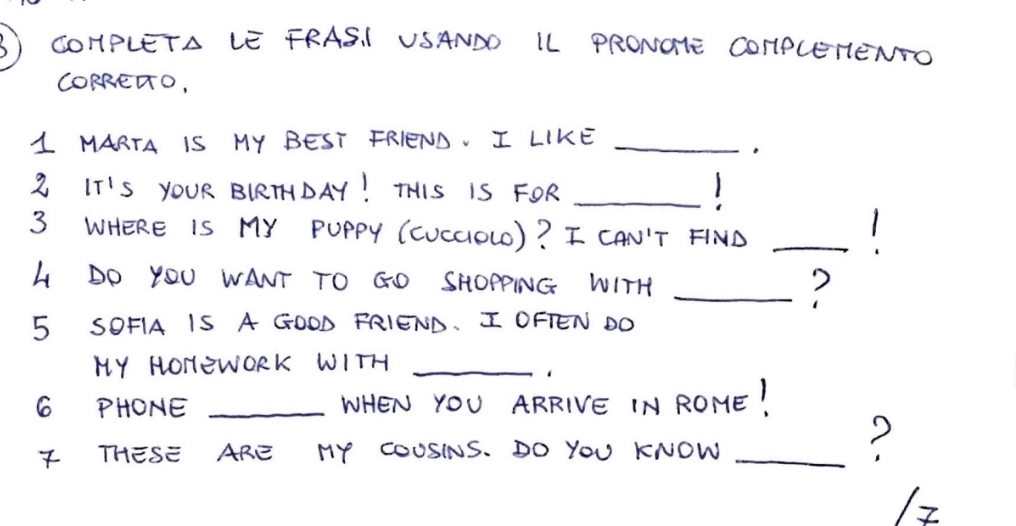 3) COMPLETA LE FRASI USANDO IL PRONOME COMPLEMENTO
CORRETTO.
1 MARTA IS MY BEST FRIEND. I LIKE ______.
2 IT'S YOUR BIRTHDAY! THIS IS FOR ______!
3 WHERE IS MY PUPPY (CUCCIOLO)? I CAN'T FIND ____!
4 DO YOU WANT TO GO SHOPPING WITH ______?
5 SOFIA IS A GOOD FRIEND. I OFTEN DO
MY HOMEWORK WITH ______.
6 PHONE ______ WHEN YOU ARRIVE IN ROME!
7 THESE ARE MY COUSINS. DO YOU KNOW ______?
/7